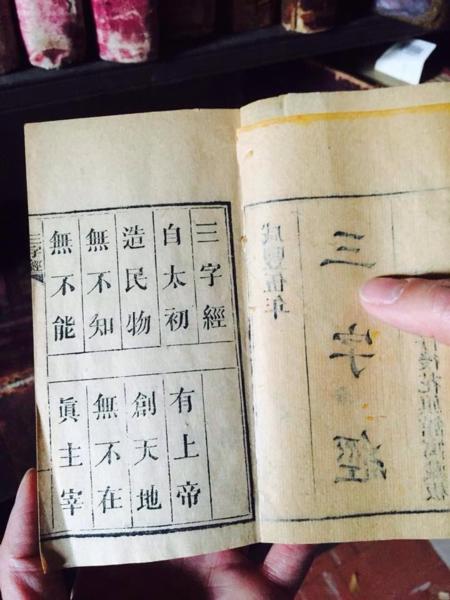 咸豐伍年
三字經
三字經
自太初 有上帝
造民物 創天地
無不知 無不在
無不能 眞主宰
三字經